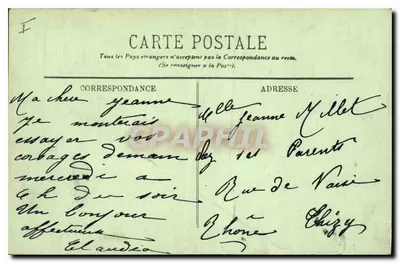 I
CARTE POSTALE
Tous les Pays étrangers n'acceptent pas la Correspondance au recto.
(Se renseigner à la Poste).
CORRESPONDANCE
ADRESSE
Ma chère Jeanne
Je monterais
essayer vos
corsages demain
mercredi a
6 h du soir
Un bonjour
affectueux
Claudia
Mlle Jeanne Millet
chez ses Parents
Rue de
Thizy
Rhône
CPAPHIL